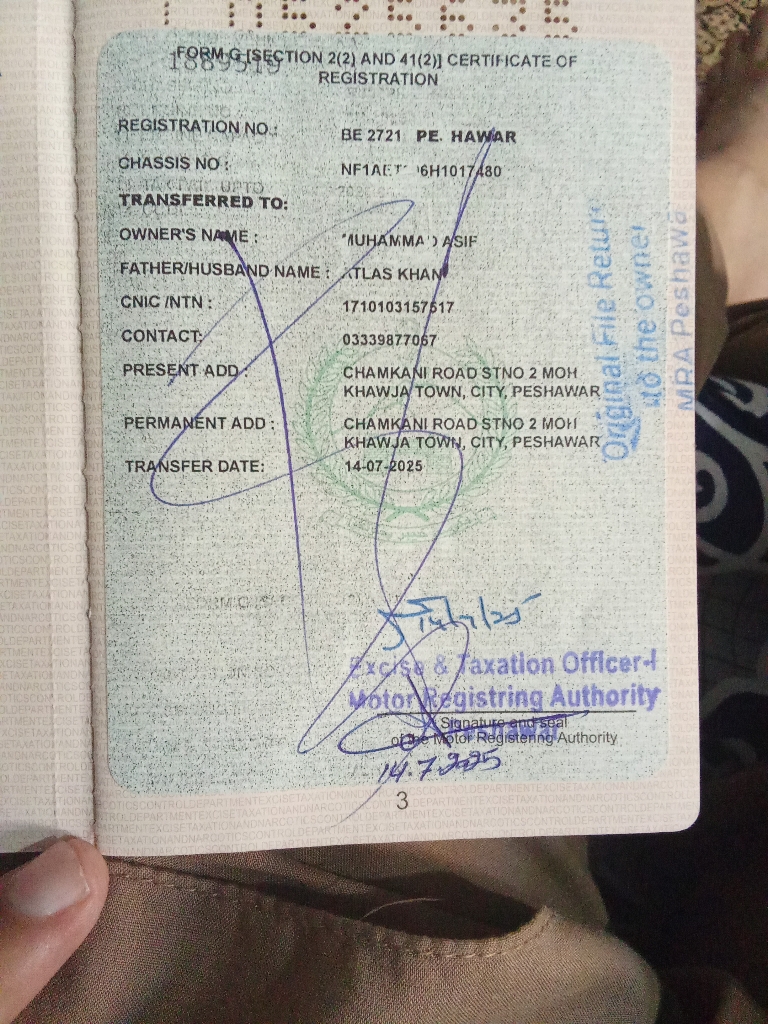 FORM G [SECTION 2(2) AND 41(2)] CERTIFICATE OF
REGISTRATION
REGISTRATION NO.: BE 2721 PE. HAWAR
CHASSIS NO : 6H1017480
TRANSFERRED TO:
OWNER'S NAME : MUHAMMAD ASIF
FATHER/HUSBAND NAME : ATLAS KHAN
CNIC /NTN : 1710103157517
CONTACT: 03339877067
PRESENT ADD : CHAMKANI ROAD STNO 2 MOH
KHAWJA TOWN, CITY, PESHAWAR
PERMANENT ADD : CHAMKANI ROAD STNO 2 MOH
KHAWJA TOWN, CITY, PESHAWAR
TRANSFER DATE: 14-07-2025
Original File Return
to the owner
MRA Peshawa
14/7/25
Excise & Taxation Officer-I
Motor Registring Authority
Signature and seal
of the Motor Registering Authority
14.7.2025
3